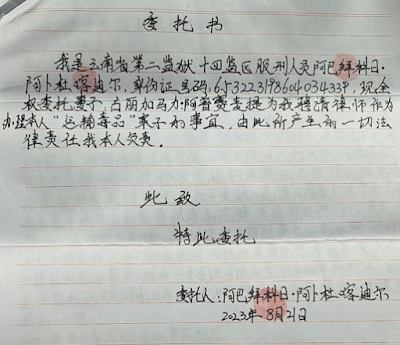 委托书
我是云南省第二监狱十四监区服刑人员阿巴拜科日·
阿卜杜喀迪尔，身份证号码：653223198604034339，现全
权委托妻子：古丽加马力·阿普赛麦提为我聘请律师作为
办理本人“运输毒品”案子的事宜，由此所产生的一切法
律责任我本人负责。
此致
特此委托
委托人：阿巴拜科日·阿卜杜喀迪尔
2023年8月21日